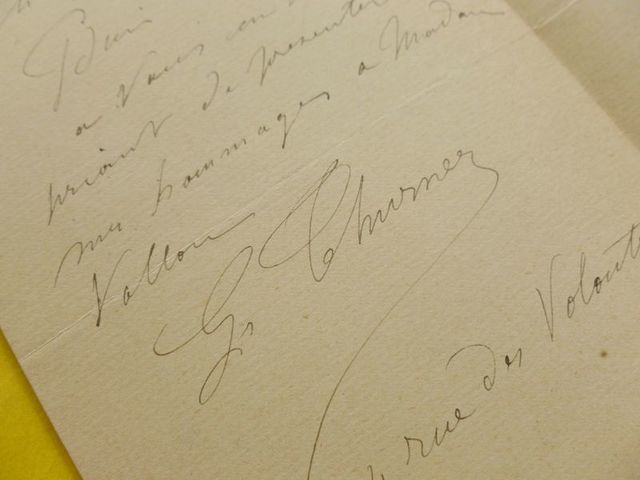 Bien
a Vous en
priant de presenter
mes hommages a Madam
Vallou
Gs Thurner
rue des Volont